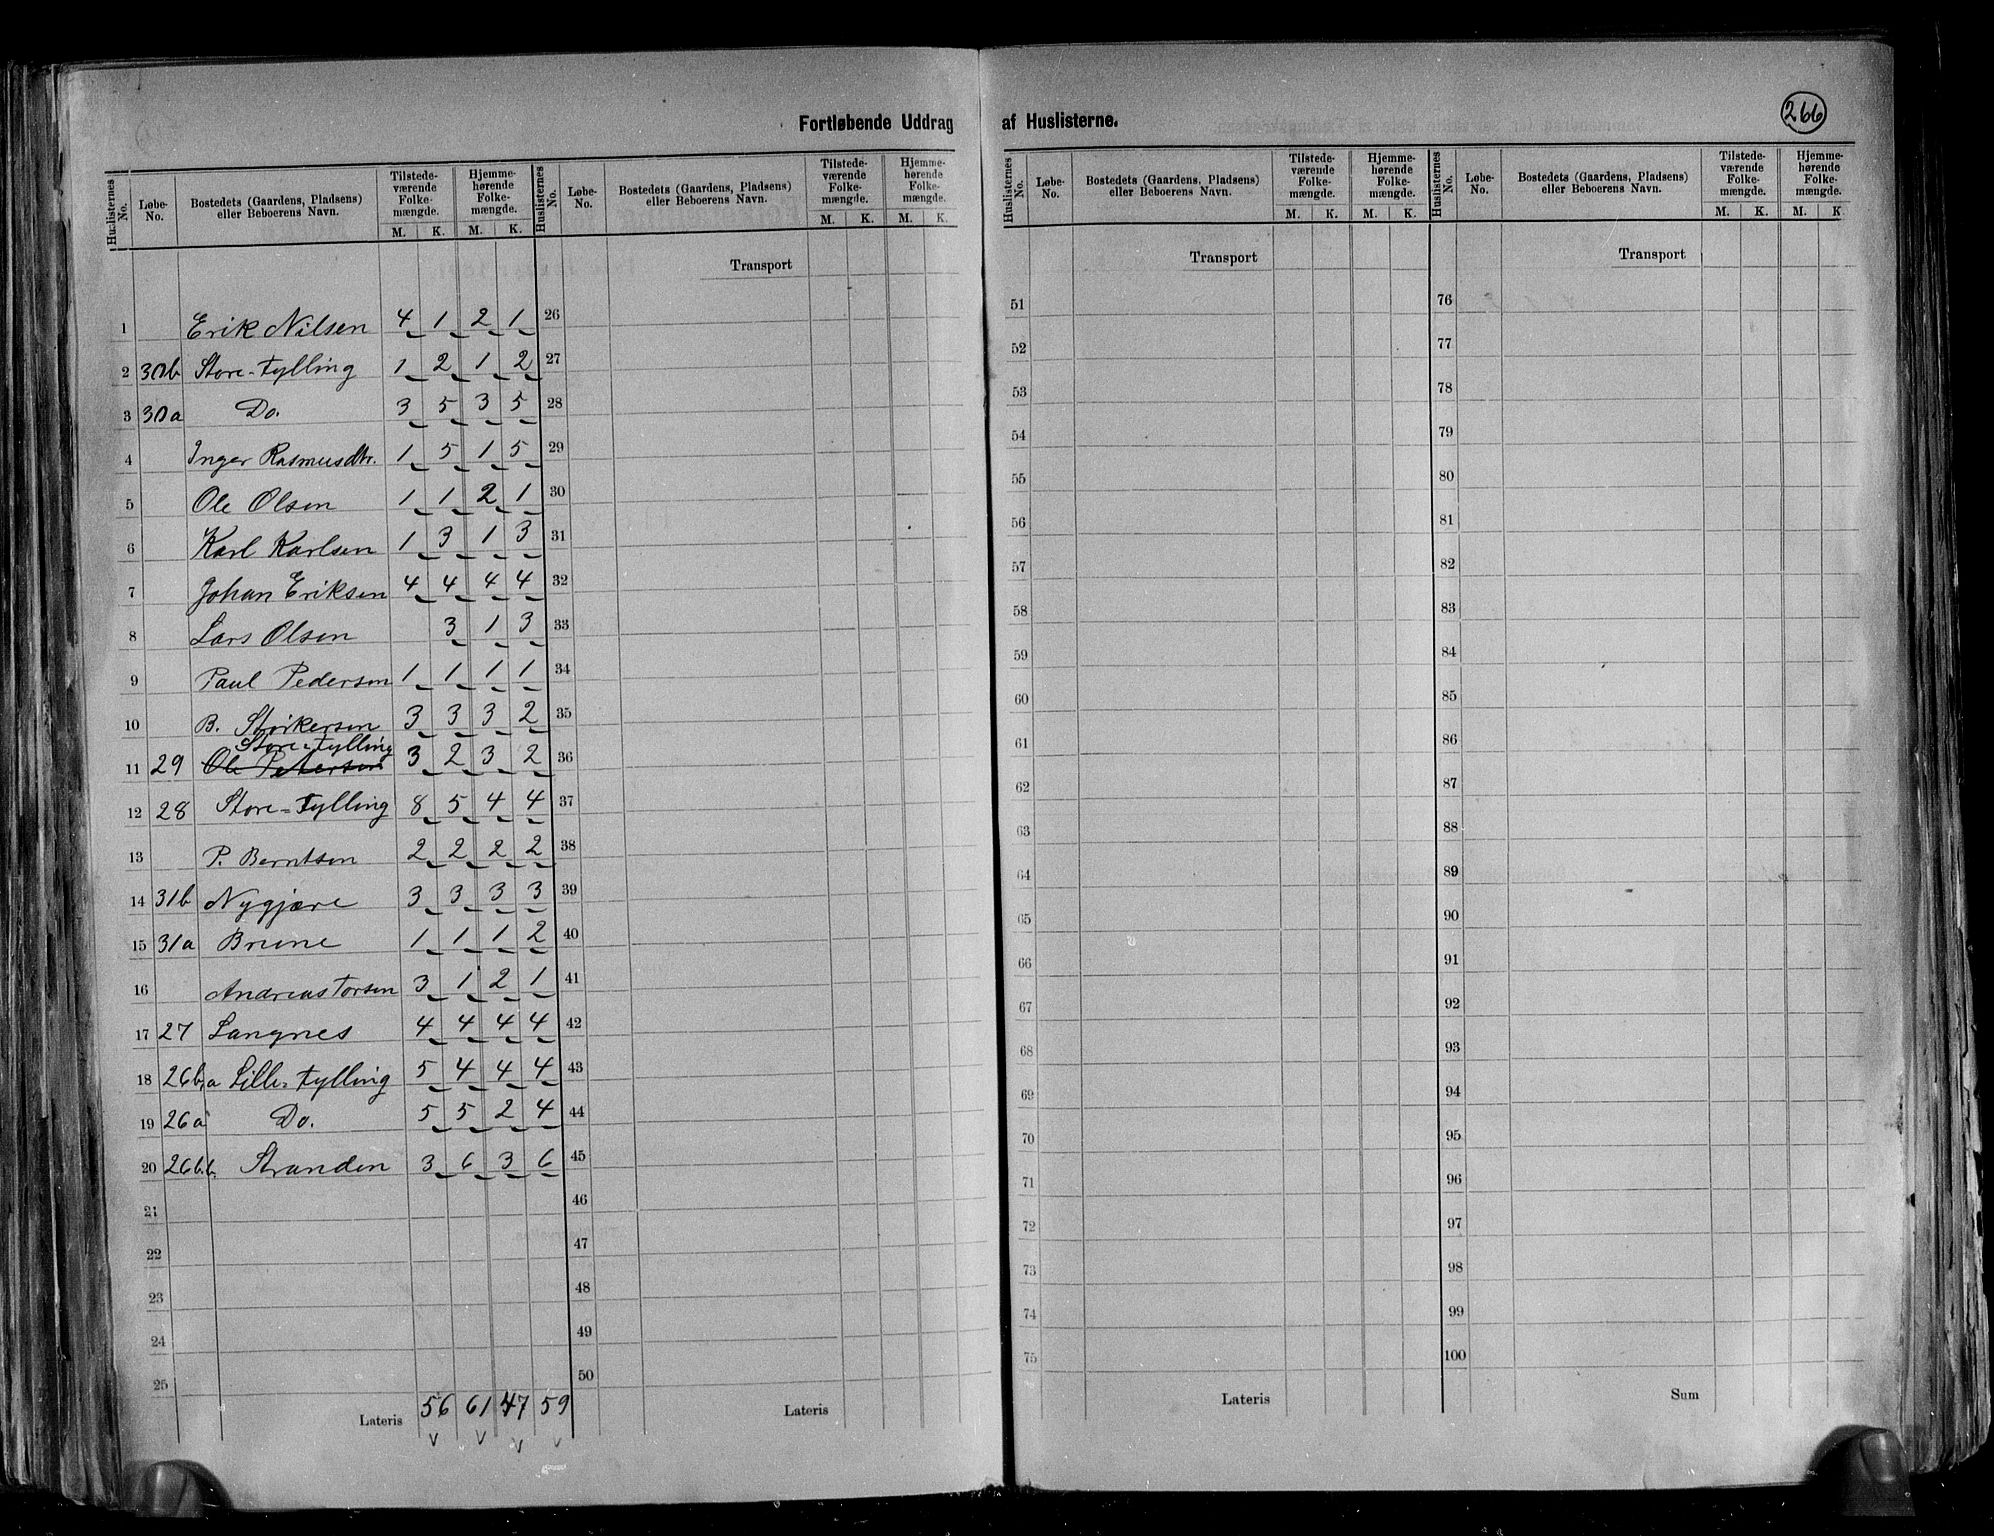 266
Fortløbende Uddrag af Huslisterne.
Huslisternes No. Løbe-No. Bostedets (Gaardens, Pladsens) eller Beboerens Navn. Tilstedeværende Folkemængde. M. K. Hjemmehørende Folkemængde. M. K.
Huslisternes No. Løbe-No. Bostedets (Gaardens, Pladsens) eller Beboerens Navn. Tilstedeværende Folkemængde. M. K. Hjemmehørende Folkemængde. M. K.
Huslisternes No. Løbe-No. Bostedets (Gaardens, Pladsens) eller Beboerens Navn. Tilstedeværende Folkemængde. M. K. Hjemmehørende Folkemængde. M. K.
Huslisternes No. Løbe-No. Bostedets (Gaardens, Pladsens) eller Beboerens Navn. Tilstedeværende Folkemængde. M. K. Hjemmehørende Folkemængde. M. K.
1 Erik Nilsen 4 1 2 1
2 30b Store-Fylling 1 2 1 2
3 30a Do. 3 5 3 5
4 Inger Rasmusdtr. 1 5 1 5
5 Ole Olsen 1 1 2 1
6 Karl Karlsen 1 3 1 3
7 Johan Eriksen 4 4 4 4
8 Lars Olsen 3 1 3
9 Paul Pedersen 1 1 1 1
10 B. Størkersen 3 3 3 2
Store-Fylling
11 29 Ole Petersen 3 2 3 2
12 28 Store-Fylling 8 5 4 4
13 P. Berntsen 2 2 2 2
14 31b Nygjære 3 3 3 3
15 31a Brune 1 1 1 2
16 Andreas Torsen 3 1 2 1
17 27 Langnes 4 4 4 4
18 26b,a Lille-Fylling 5 4 4 4
19 26a Do. 5 5 2 4
20 26b,b. Stranden 3 6 3 6
21
22
23
24
25
Lateris 56 61 47 59
Transport
26
27
28
29
30
31
32
33
34
35
36
37
38
39
40
41
42
43
44
45
46
47
48
49
50
Lateris
Transport
51
52
53
54
55
56
57
58
59
60
61
62
63
64
65
66
67
68
69
70
71
72
73
74
75
Lateris
Transport
76
77
78
79
80
81
82
83
84
85
86
87
88
89
90
91
92
93
94
95
96
97
98
99
100
Sum